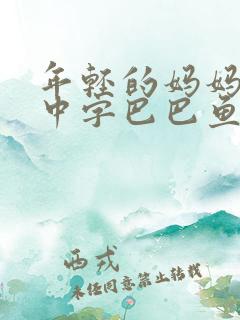 年轻的妈妈
中字巴巴鱼
西戎
未经同意禁止转载